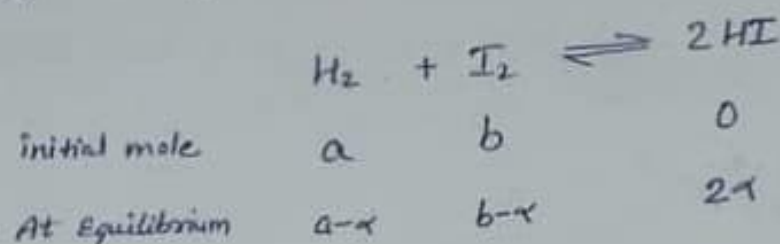 H₂ + I₂ ⇌ 2HI
initial mole a b 0
At Equilibrium a-α b-α 2α